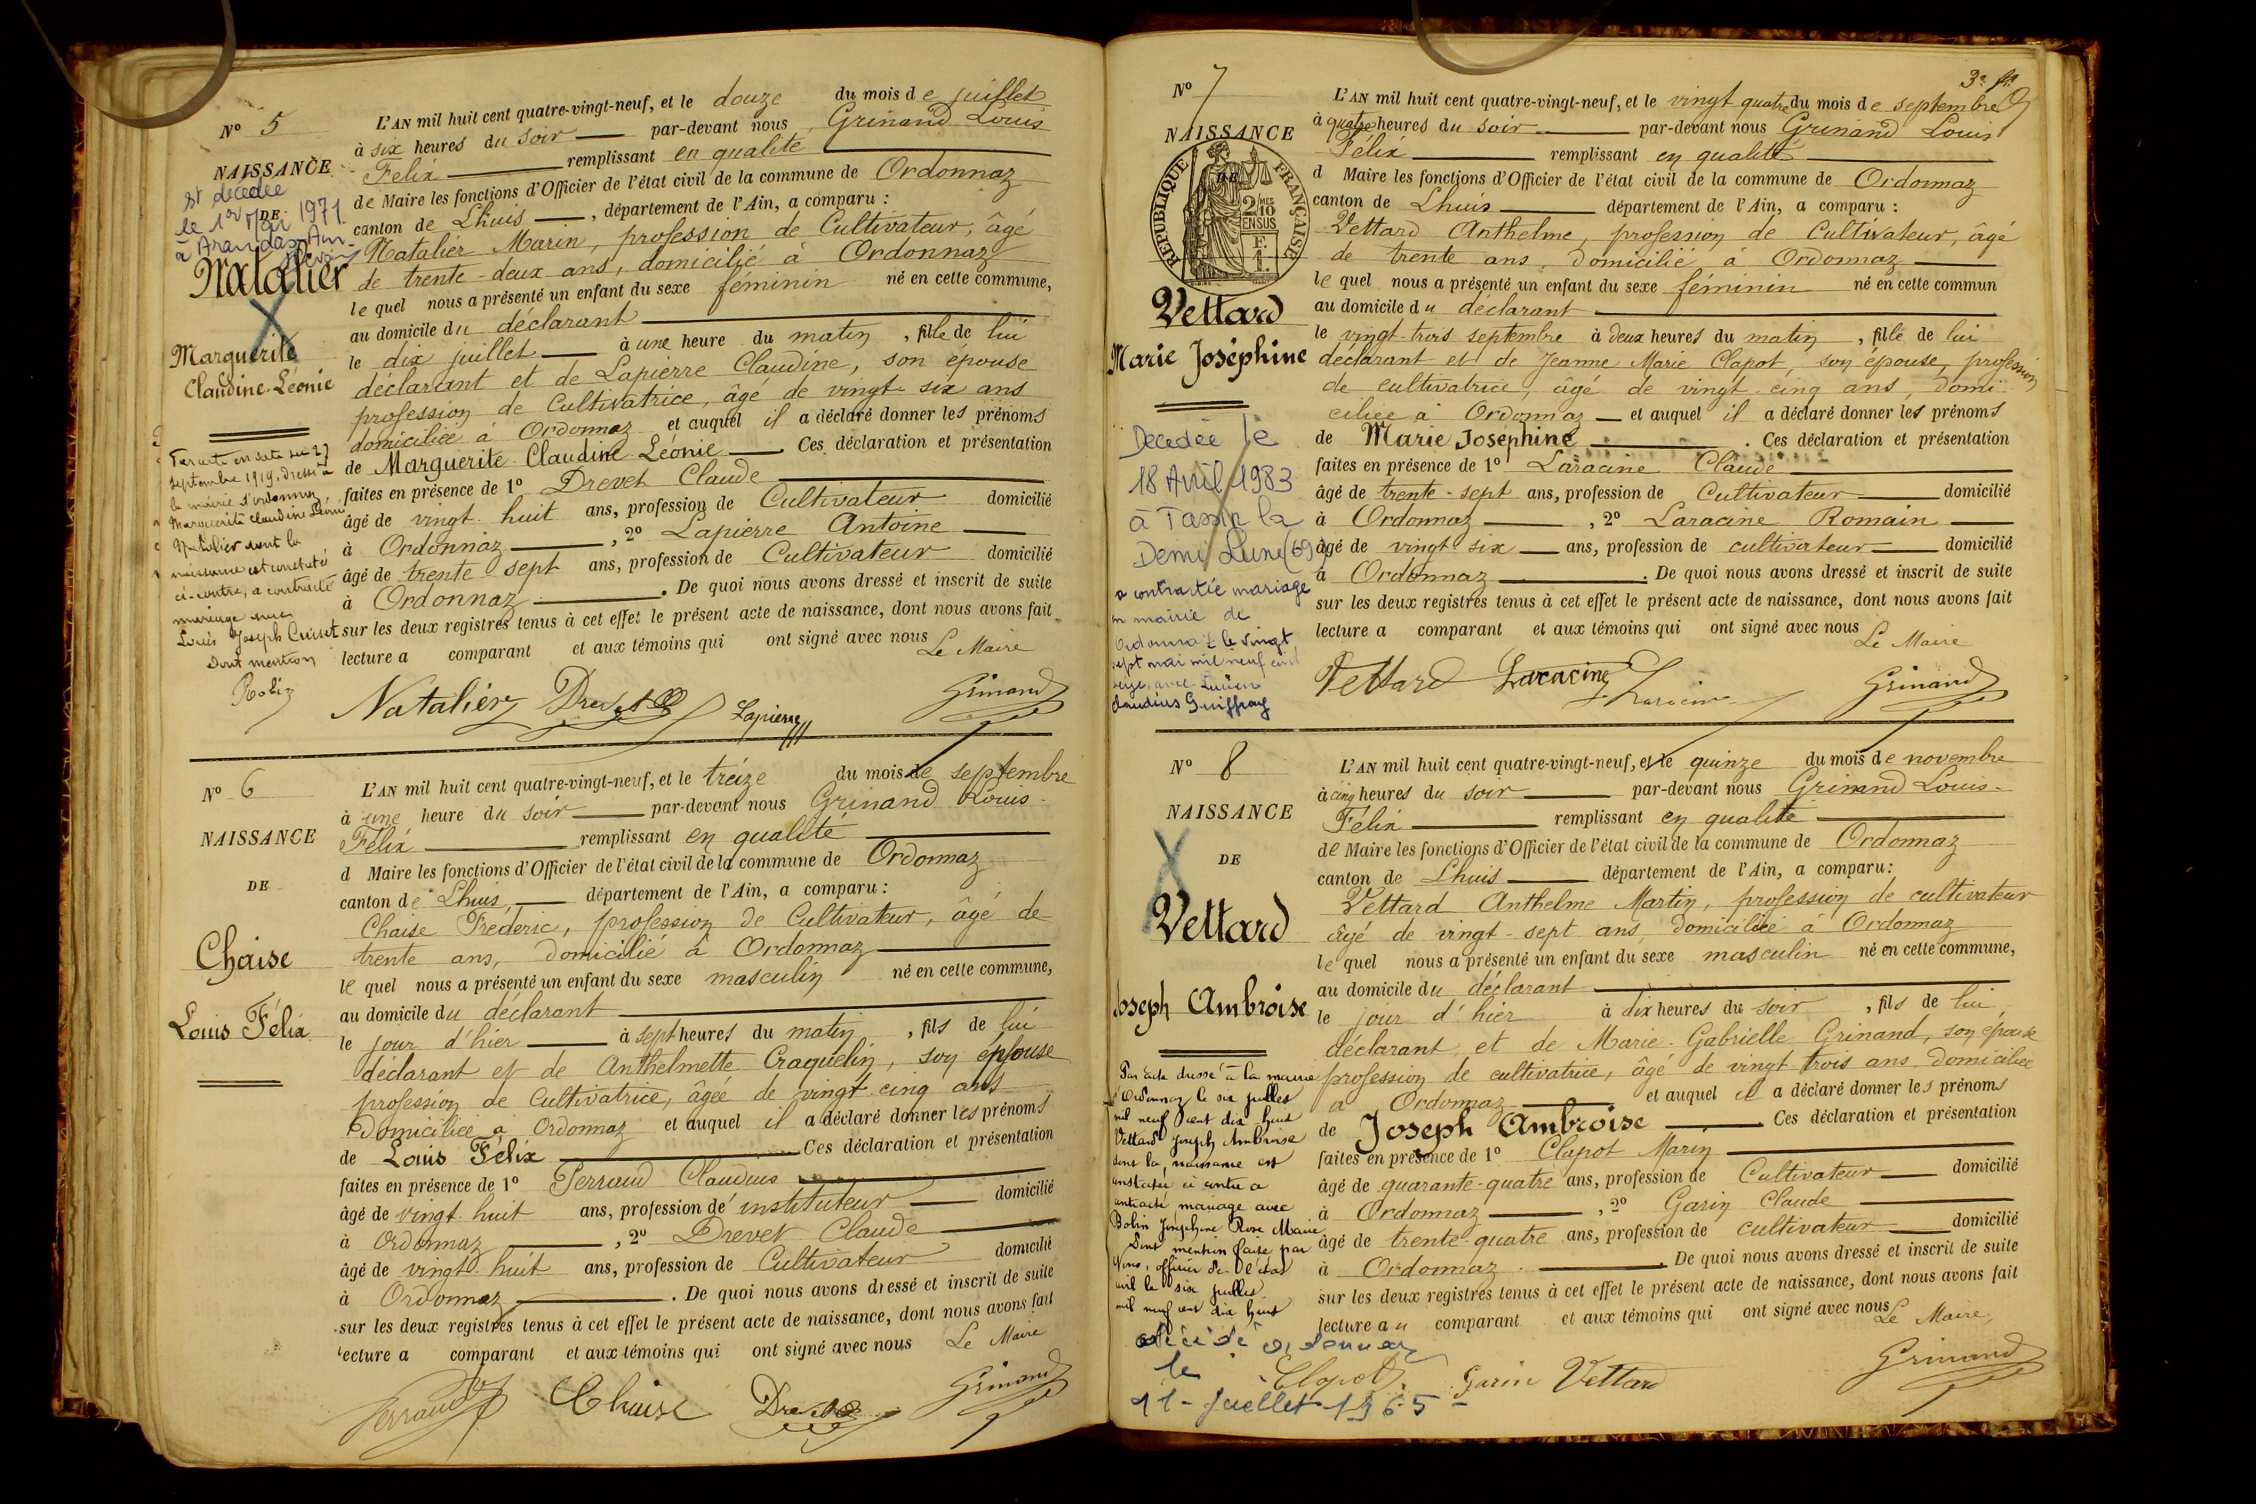 Nº 5
NAISSANCE
DE
est décédée
le 1er Mai 1971
à Arandas Ain
Natalier
Marguerite
Claudine Léonie
Par acte en date du 27
septembre 1919, dressé à
la mairie d'ordonnaz,
Marguerite Claudine Léonie
Natalier dont la
naissance est constatée
ci-contre, a contracté
mariage avec
Louis Joseph Cuiset
Dont mention
L'AN mil huit cent quatre-vingt-neuf, et le douze du mois de juillet
à six heures du soir par-devant nous Grinand Louis
Félix remplissant en qualité
de Maire les fonctions d'Officier de l'état civil de la commune de Ordonnaz
canton de Lhuis, département de l'Ain, a comparu :
Natalier Marin, profession de Cultivateur, âgé
de trente-deux ans, domicilié à Ordonnaz
lequel nous a présenté un enfant du sexe féminin né en cette commune,
au domicile du déclarant
le dix juillet à une heure du matin, fille de lui
déclarant et de Lapierre Claudine, son épouse
profession de Cultivatrice, âgé de vingt-six ans
domiciliée à Ordonnaz et auquel il a déclaré donner les prénoms
de Marguerite Claudine Léonie Ces déclaration et présentation
faites en présence de 1º Drevet Claude
âgé de vingt huit ans, profession de Cultivateur domicilié
à Ordonnaz, 2º Lapierre Antoine
âgé de trente sept ans, profession de Cultivateur domicilié
à Ordonnaz. De quoi nous avons dressé et inscrit de suite
sur les deux registres tenus à cet effet le présent acte de naissance, dont nous avons fait
lecture a comparant et aux témoins qui ont signé avec nous Le Maire
Natalier Drevet Lapierre Grinand
Nº 6
NAISSANCE
DE
Chaise
Louis Félix
L'AN mil huit cent quatre-vingt-neuf, et le treize du mois de septembre
à une heure du soir par-devant nous Grinand Louis
Félix remplissant en qualité
d Maire les fonctions d'Officier de l'état civil de la commune de Ordonnaz
canton de Lhuis, département de l'Ain, a comparu :
Chaise Frédéric, profession de Cultivateur, âgé de
trente ans, domicilié à Ordonnaz
lequel nous a présenté un enfant du sexe masculin né en cette commune,
au domicile du déclarant
le jour d'hier à sept heures du matin, fils de lui
déclarant et de Anthelmette Craquelin, son épouse
profession de Cultivatrice, âgée de vingt-cinq ans
Domiciliée à Ordonnaz et auquel il a déclaré donner les prénoms
de Louis Félix Ces déclaration et présentation
faites en présence de 1º Perraud Claudius
âgé de vingt huit ans, profession d'instituteur domicilié
à Ordonnaz, 2º Drevet Claude
âgé de vingt huit ans, profession de Cultivateur domicilié
à Ordonnaz. De quoi nous avons dressé et inscrit de suite
sur les deux registres tenus à cet effet le présent acte de naissance, dont nous avons fait
lecture a comparant et aux témoins qui ont signé avec nous Le Maire
Perraud Chaise Drevet Grinand
Nº 7
NAISSANCE
RÉPUBLIQUE FRANÇAISE
2 MES
10
EN SUS
F.
1.
Vettard
Marie Joséphine
Decedée le
18 Avril 1983
à Tassin la
Demi Lune (69)
a contracté mariage
en mairie de
Ordonnaz le vingt
sept mai mil neuf cent
seize avec Lucien
Claudius Guiffray
L'AN mil huit cent quatre-vingt-neuf, et le vingt quatre du mois de septembre
à quatre heures du soir par-devant nous Grinand Louis
Félix remplissant en qualité
d Maire les fonctions d'Officier de l'état civil de la commune de Ordonnaz
canton de Lhuis département de l'Ain, a comparu :
Vettard Anthelme, profession de Cultivateur, âgé
de trente ans, domicilié à Ordonnaz
lequel nous a présenté un enfant du sexe féminin né en cette commun
au domicile du déclarant
le vingt-trois septembre à deux heures du matin, fille de lui
déclarant et de Jeanne Marie Clapot, son épouse, profession
de cultivatrice, âgé de vingt cinq ans, domi
ciliée à Ordonnaz et auquel il a déclaré donner les prénoms
de Marie Joséphine. Ces déclaration et présentation
faites en présence de 1º Laracine Claude
âgé de trente-sept ans, profession de Cultivateur domicilié
à Ordonnaz, 2º Laracine Romain
âgé de vingt six ans, profession de cultivateur domicilié
à Ordonnaz. De quoi nous avons dressé et inscrit de suite
sur les deux registres tenus à cet effet le présent acte de naissance, dont nous avons fait
lecture a comparant et aux témoins qui ont signé avec nous Le Maire
Vettard Laracine Laracine Grinand
Nº 8
NAISSANCE
DE
Vettard
Joseph Ambroise
Par acte dressé à la mairie
d'Ordonnaz le six juillet
mil neuf cent dix huit
Vettard Joseph Ambroise
dont la naissance est
constatée ci contre a
contracté mariage avec
Bolin Joséphine Rose Marie
Dont mention faite par
Nous, officier de l'état
civil le six juillet
mil neuf cent dix huit
décédé à Ordonnaz
le
11 - juillet 1965
L'AN mil huit cent quatre-vingt-neuf, et le quinze du mois de novembre
à cinq heures du soir par-devant nous Grinand Louis
Félix remplissant en qualité
de Maire les fonctions d'Officier de l'état civil de la commune de Ordonnaz
canton de Lhuis département de l'Ain, a comparu :
Vettard Anthelme Martin, profession de cultivateur
âgé de vingt-sept ans, domiciliée à Ordonnaz
lequel nous a présenté un enfant du sexe masculin né en cette commune,
au domicile du déclarant
le jour d'hier à dix heures du soir, fils de lui
déclarant, et de Marie-Gabrielle Grinand, son épouse
profession de cultivatrice, âgé de vingt trois ans, domiciliée
à Ordonnaz et auquel il a déclaré donner les prénoms
de Joseph Ambroise Ces déclaration et présentation
faites en présence de 1º Clapot Marin
âgé de quarante-quatre ans, profession de Cultivateur domicilié
à Ordonnaz, 2º Garin Claude
âgé de trente-quatre ans, profession de cultivateur domicilié
à Ordonnaz. De quoi nous avons dressé et inscrit de suite
sur les deux registres tenus à cet effet le présent acte de naissance, dont nous avons fait
lecture au comparant et aux témoins qui ont signé avec nous Le Maire,
Clapot Garin Vettard Grinand